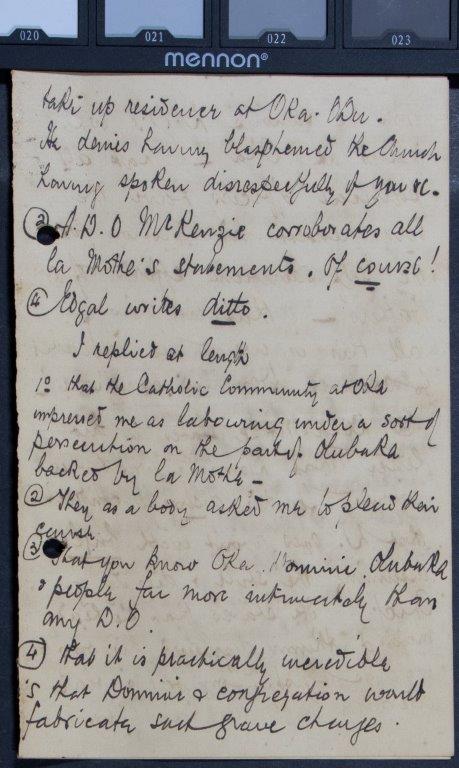 020 021 022 023
mennon®
take up residence at Oka-Odu.
He denies having blasphemed the Church
having spoken disrespectfully of you &c.
③ A.D.O McKenzie corroborates all
la Mothe's statements. Of course!
④ Edgal writes ditto.
I replied at length
1º that the Catholic Community at Oka
impressed me as labouring under a sort of
persecution on the part of Olubaka
backed by la Mothe –
② They as a body asked me to plead their
cause.
③ That you know Oka. Dominic, Olubaka
& people far more intimately than
any D.O.
④ that it is practically incredible
that Dominic & congregation would
fabricate such grave charges.